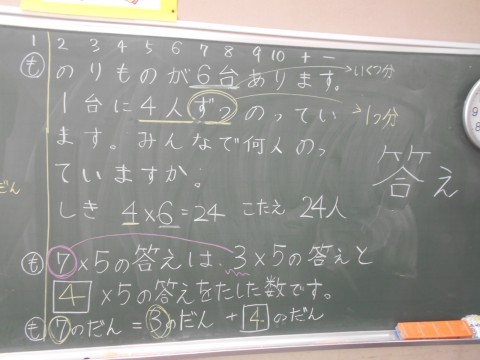 1 2 3 4 5 6 7 8 9 10 + −
も のりものが6台あります。 いくつ分
1台に4人ずつのってい 1つ分
ます。みんなで何人のっ
ていますか。
しき 4×6=24 こたえ 24人
答え
だん
も 7×5の答えは、3×5の答えと
4×5の答えをたした数です。
も 7のだん=3のだん+4のだん
9
8